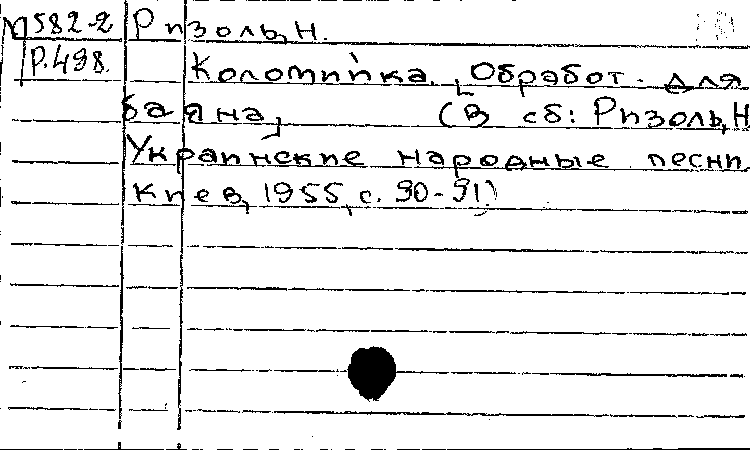 М582-2 Ризоль, Н.
Р.498. Коломийка. [Обработ. для
баяна] (В сб: Ризоль, Н
Украинские народные песни
Киев, 1955, с. 90-91)